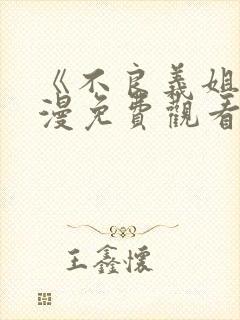 《不良義姐
漫免費觀看
王鑫懷